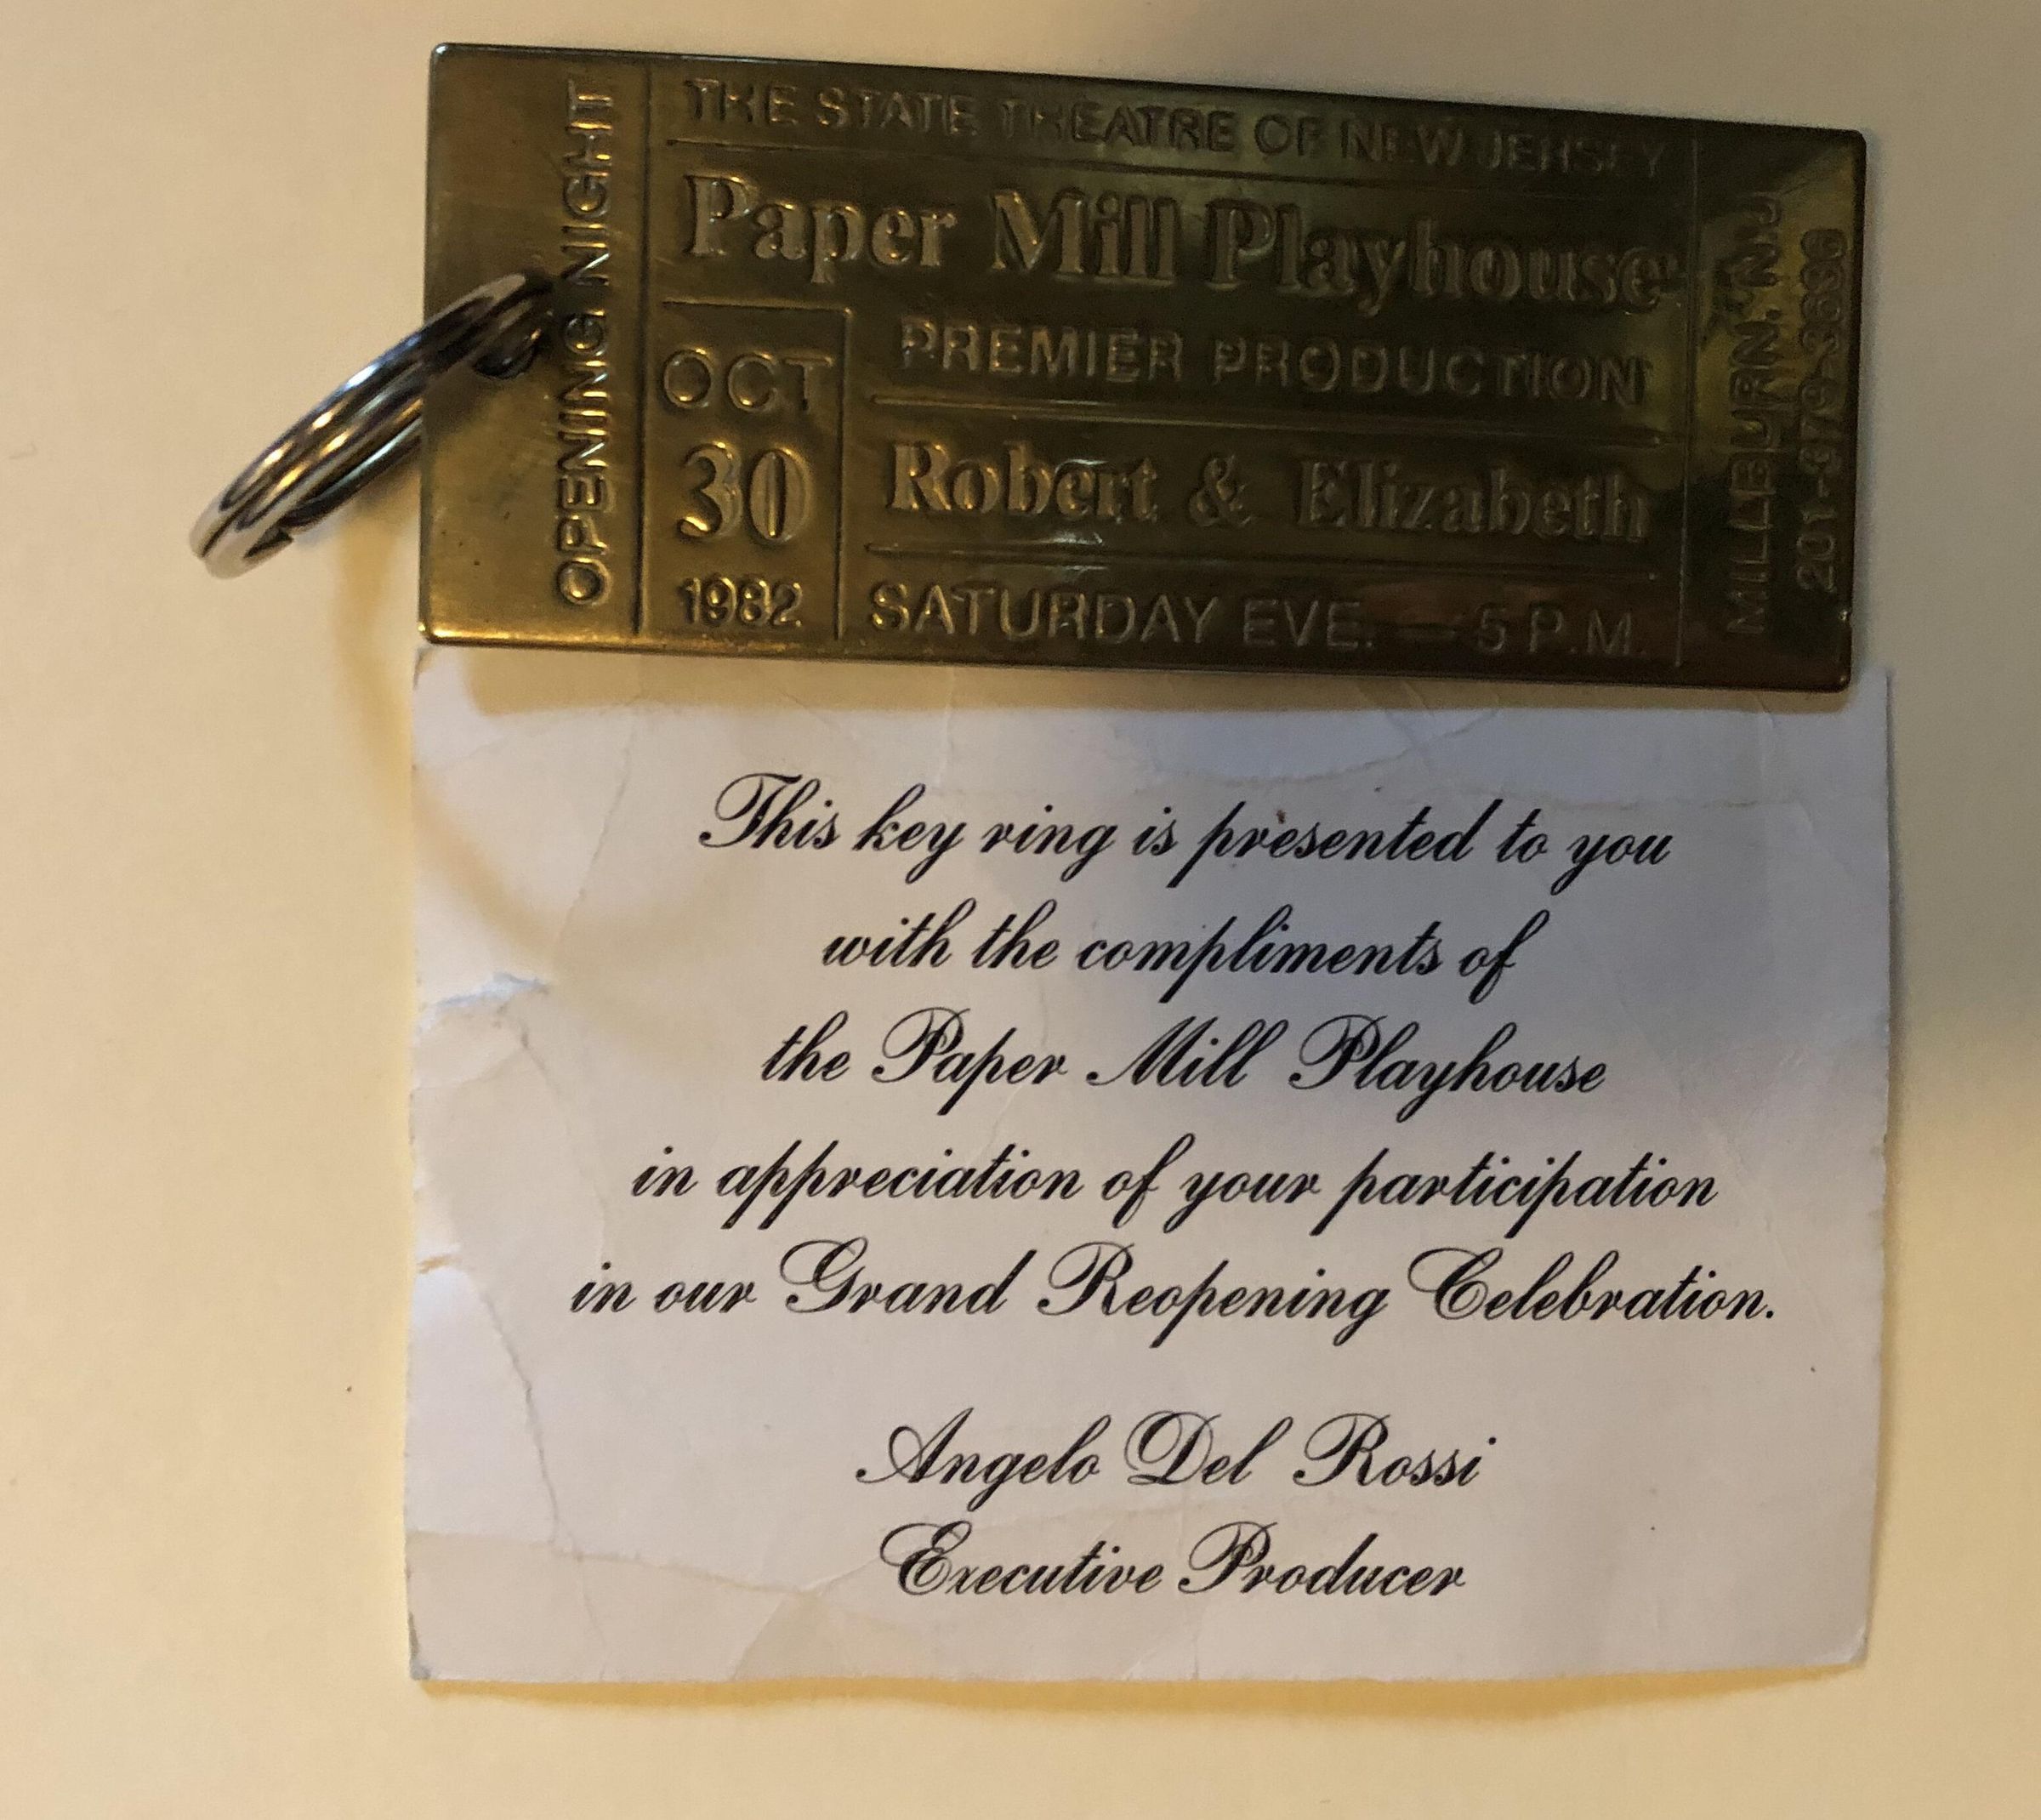 OPENING NIGHT
THE STATE THEATRE OF NEW JERSEY
Paper Mill Playhouse
OCT
30
1982
PREMIER PRODUCTION
Robert & Elizabeth
SATURDAY EVE. — 5 P.M.
MILLBURN, N.J.
201-379-3636
This key ring is presented to you
with the compliments of
the Paper Mill Playhouse
in appreciation of your participation
in our Grand Reopening Celebration.
Angelo Del Rossi
Executive Producer